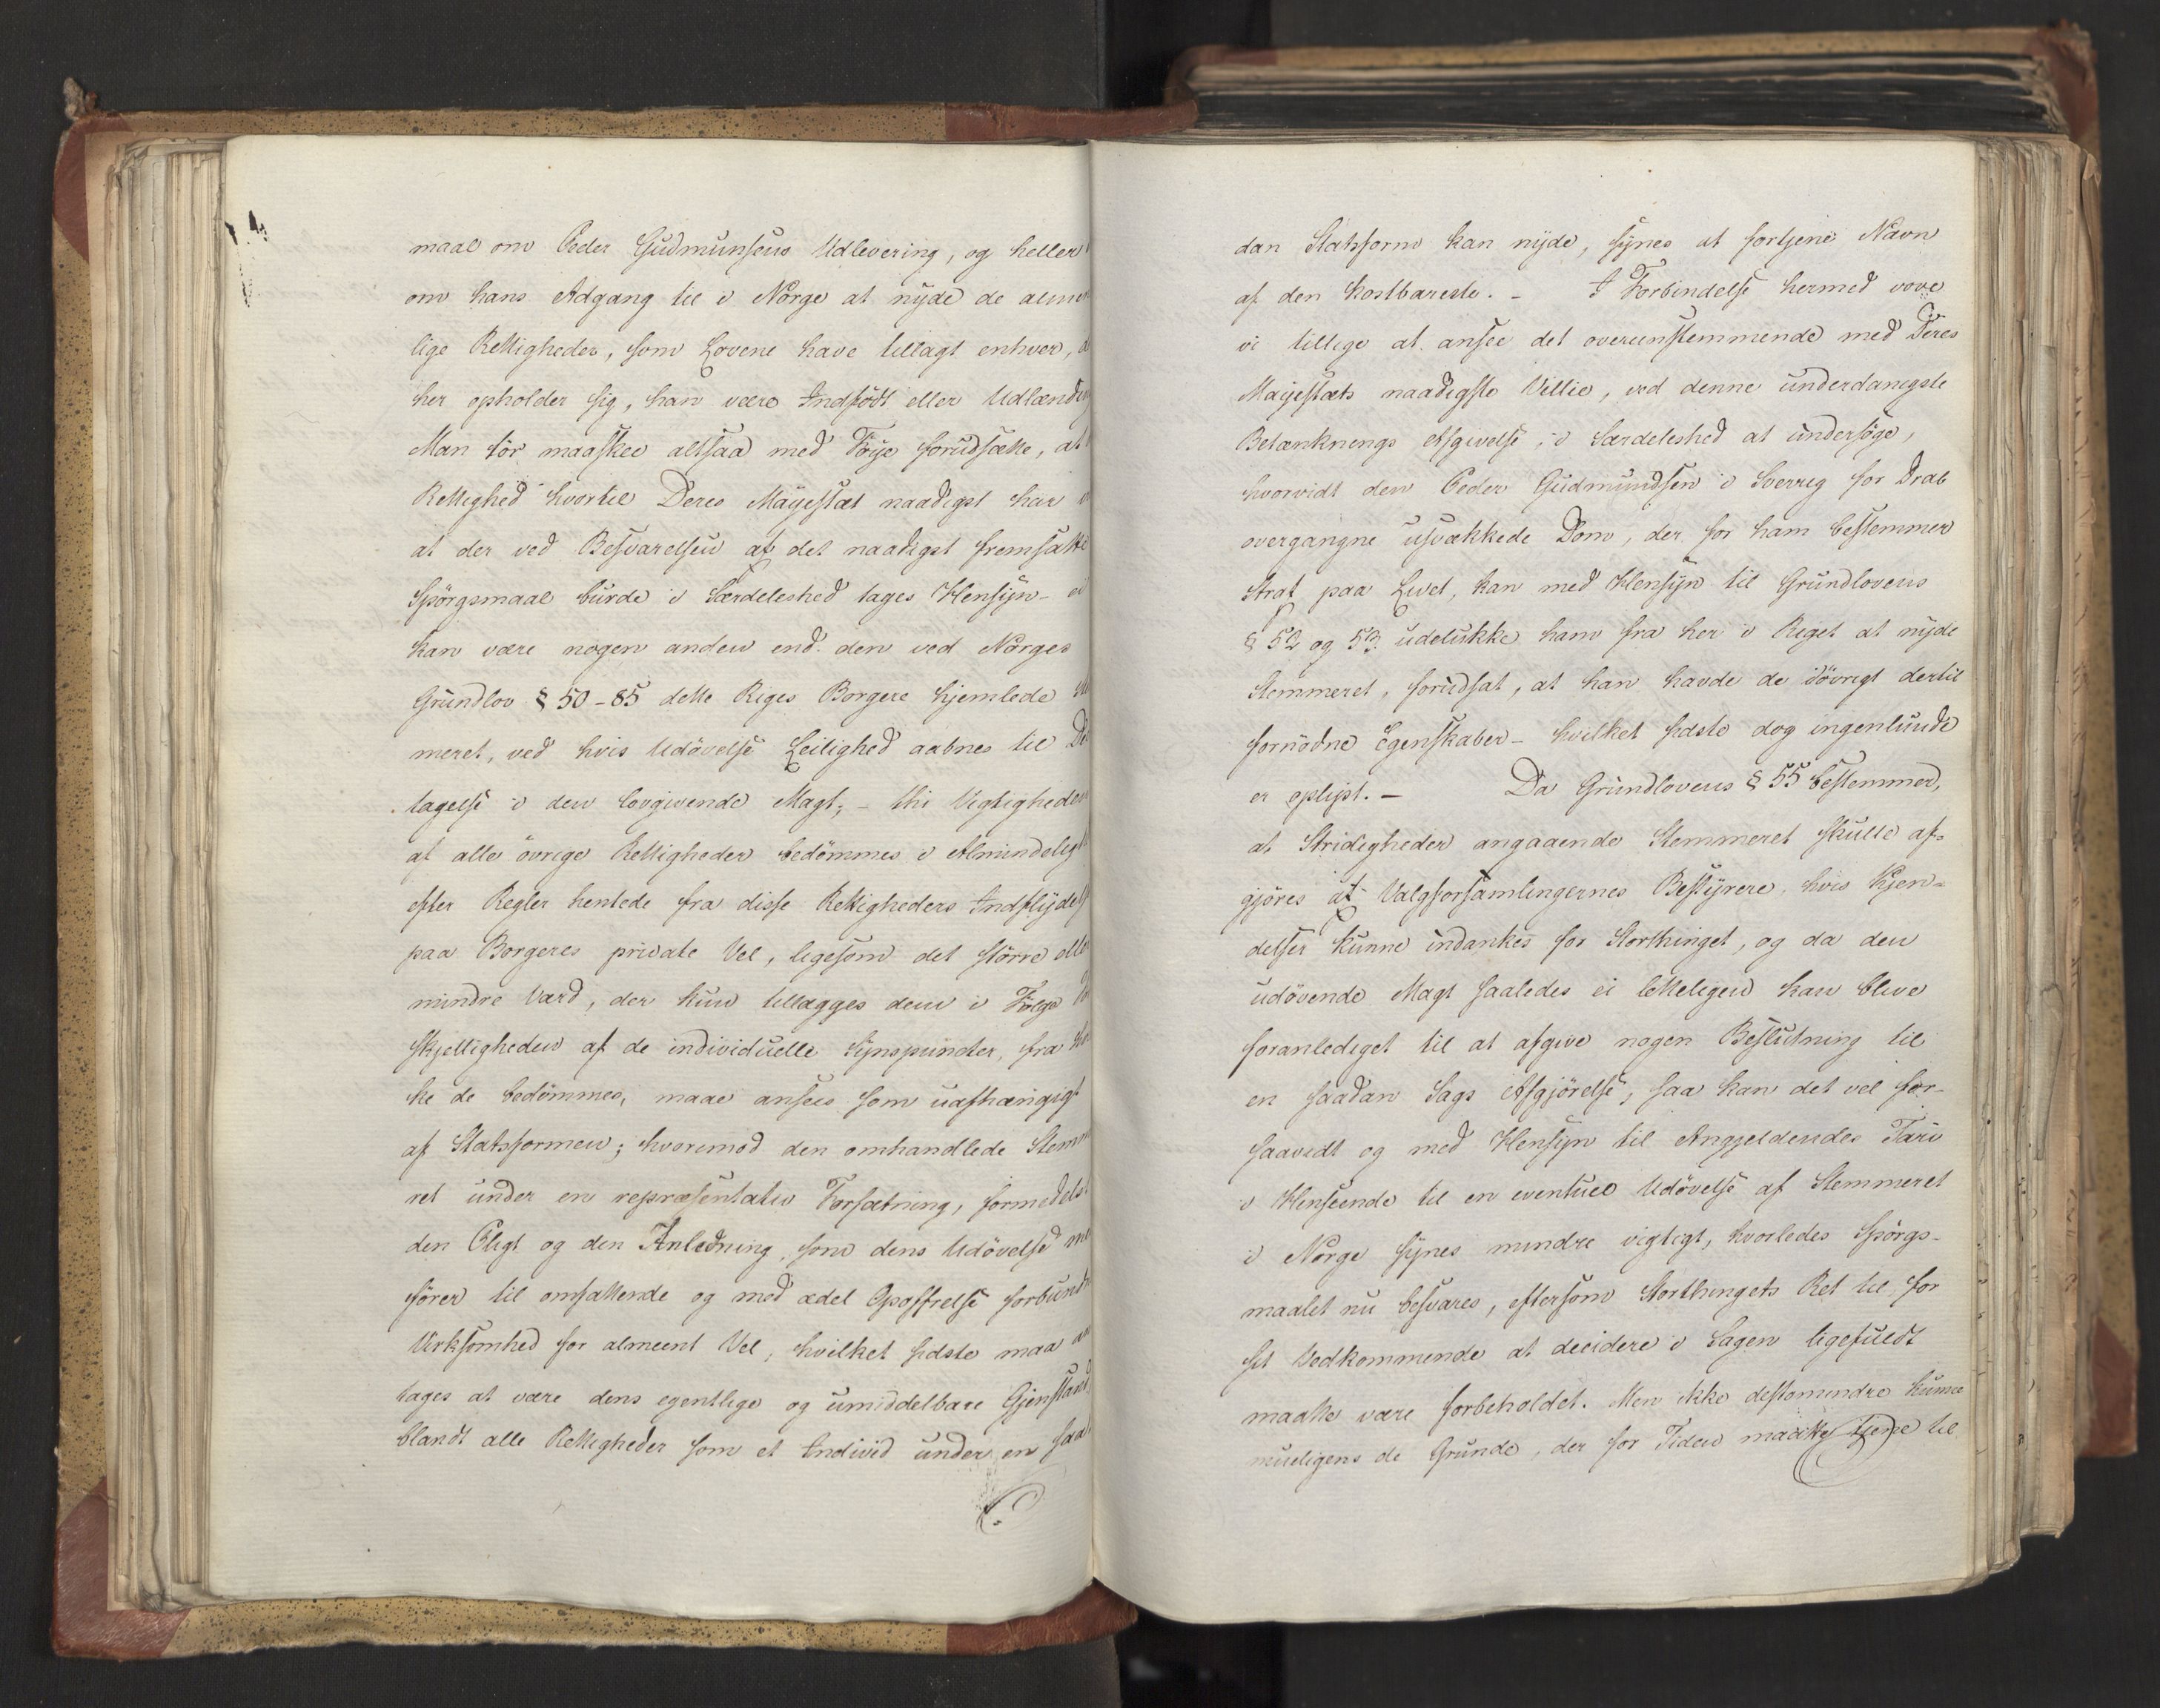 maal om Peder Gudmunsens Udlevering, og heller
om hans Adgang til i Norge at nyde de almen
lige Rettigheder, som Lovene have tillagt enhver, d
her opholder sig, han være Indfödt eller Udlænding
Man tör maaskee altsaa med Föye forudsætte, at
Rettighed hvortil Deres Mayestæt naadigst har
at der ved Besvarelsen af det naadigst fremsatte
Spörgsmaal burde i Særdeleshed tages Hensyn - ei
kan være nogen anden end den ved Norges
Grundlov § 50-85 dette Riges Borgere hjemlede
meret, ved hvis Udövelse Leilighed aabnes til De
tagelse i den lovgivende Magt; - thi Vigtigheden
af alle övrige Rettigheder bedömmes i Almindelighed
efter Regler hentede fra disse Rettigheders Indflydelse
paa Borgeres private Vel, ligesom det större eller
mindre Værd, der kun tillægges dem i Fölge
skjelligheden af de individuelle Synspuncter, fra
ke de bedömmes, maae ansees som uafhængigt
af Statsformen; hvorimod den omhandlede Stemme
ret under en repræsentativ Forfatning, formedelst
den Pligt og den Anledning, som dens Udövelse
förer til omfattende og med ædel Opoffrelse forbunden
Virksomhed for almeent Vel, hvilket sidste maa an
tages at være dens egentlige og umiddelbare Gjenstand
blandt alle Rettigheder som et Individ under en saa
dan Statsform kan nyde, synes at fortjene Navn
af den kostbareste. - I Forbindelse hermed vove
vi tillige at ansee det overeensstemmende med Deres
Mayestæts naadigste Villie, ved denne underdanigste
Betænknings Afgivelse, i Særdeleshed at undersöge,
hvorvidt den Peder Gudmundsen i Sverrig for Drab
overgangne usvækkede Dom, der for ham bestemmer
Straf paa Livet, kan med Hensyn til Grundlovens
§ 52 og 53 udelukke ham fra her i Riget at nyde
Stemmeret, forudsat, at han havde de iövrigt dertil
fornödne Egenskaber - hvilket sidste dog ingenlunde
er oplyst. - Da Grundlovens § 55 bestemmer,
at Stridigheder angaaende Stemmeret skulle af-
gjöres af Valgforsamlingernes Bestyrere, hvis Kjen-
delser kunne indankes for Storthinget, og da den
udövende Magt saaledes ei letteligen kan blive
foranlediget til at afgive nogen Beslutning til
en saadan Sags Afgjörelse, saa kan det vel for-
saavidt og med Hensyn til Angjeldendes Tarv
i Henseende til en eventuel Udövelse af Stemmeret
i Norge synes mindre vigtigt, hvorledes Spörgs-
maalet nu besvares, eftersom Storthingets Ret til for
sit Vedkommende at decidere i Sagen ligefuldt
maatte være forbeholdet. Men ikke destomindre kunne
mueligens de Grunde, der for Tiden maatte tjene til